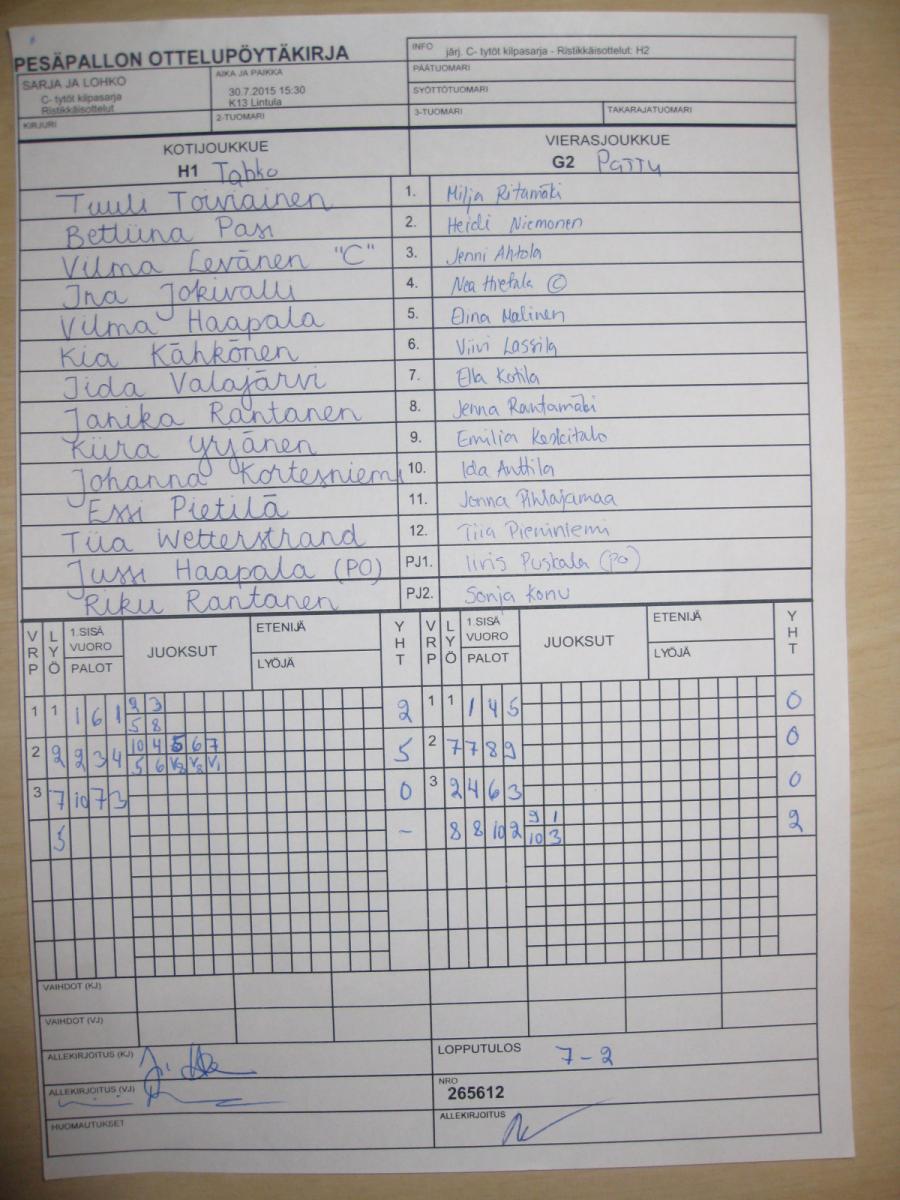 PESÄPALLON OTTELUPÖYTÄKIRJA
INFO järj. C- tytöt kilpasarja - Ristikkäisottelut: H2
PÄÄTUOMARI
SYÖTTÖTUOMARI
SARJA JA LOHKO
C- tytöt kilpasarja
Ristikkäisottelut
AIKA JA PAIKKA
30.7.2015 15:30
K13 Lintula
KIRJURI
2-TUOMARI
3-TUOMARI
TAKARAJATUOMARI
KOTIJOUKKUE
H1 Tahko
VIERASJOUKKUE
G2 Pattu
Tuuli Toiviainen 1. Milja Ritamäki
Bettiina Pasi 2. Heidi Niemonen
Vilma Levänen "C" 3. Jenni Ahtola
Ina Jokivalli 4. Nea Hietala ©
Vilma Haapala 5. Elina Malinen
Kia Kähkönen 6. Viivi Lassila
Iida Valajärvi 7. Ella Kotila
Janika Rantanen 8. Jenna Rantamäki
Kiira Yrjänen 9. Emilia Keskitalo
Johanna Kortesniemi 10. Ida Anttila
Essi Pietilä 11. Jonna Pihlajamaa
Tiia Wetterstrand 12. Tiia Pieniniemi
Jussi Haapala (PO) PJ1. Iiris Puskala (PO)
Riku Rantanen PJ2. Sonja Konu
VRP LYÖ 1.SISÄ VUORO PALOT JUOKSUT ETENIJÄ LYÖJÄ YHT VRP LYÖ 1.SISÄ VUORO PALOT JUOKSUT ETENIJÄ LYÖJÄ YHT
1 1 1 6 1 2 3 2 1 1 1 4 5 0
5 8
2 2 2 3 4 10 4 5 6 7 5 2 7 7 8 9 0
5 6 V8 V8 V1
3 7 10 7 3 0 3 2 4 6 3 0
5 - 8 8 10 2 9 1 2
10 3
VAIHDOT (KJ)
VAIHDOT (VJ)
ALLEKIRJOITUS (KJ)
LOPPUTULOS 7-2
ALLEKIRJOITUS (VJ)
NRO
265612
HUOMAUTUKSET
ALLEKIRJOITUS